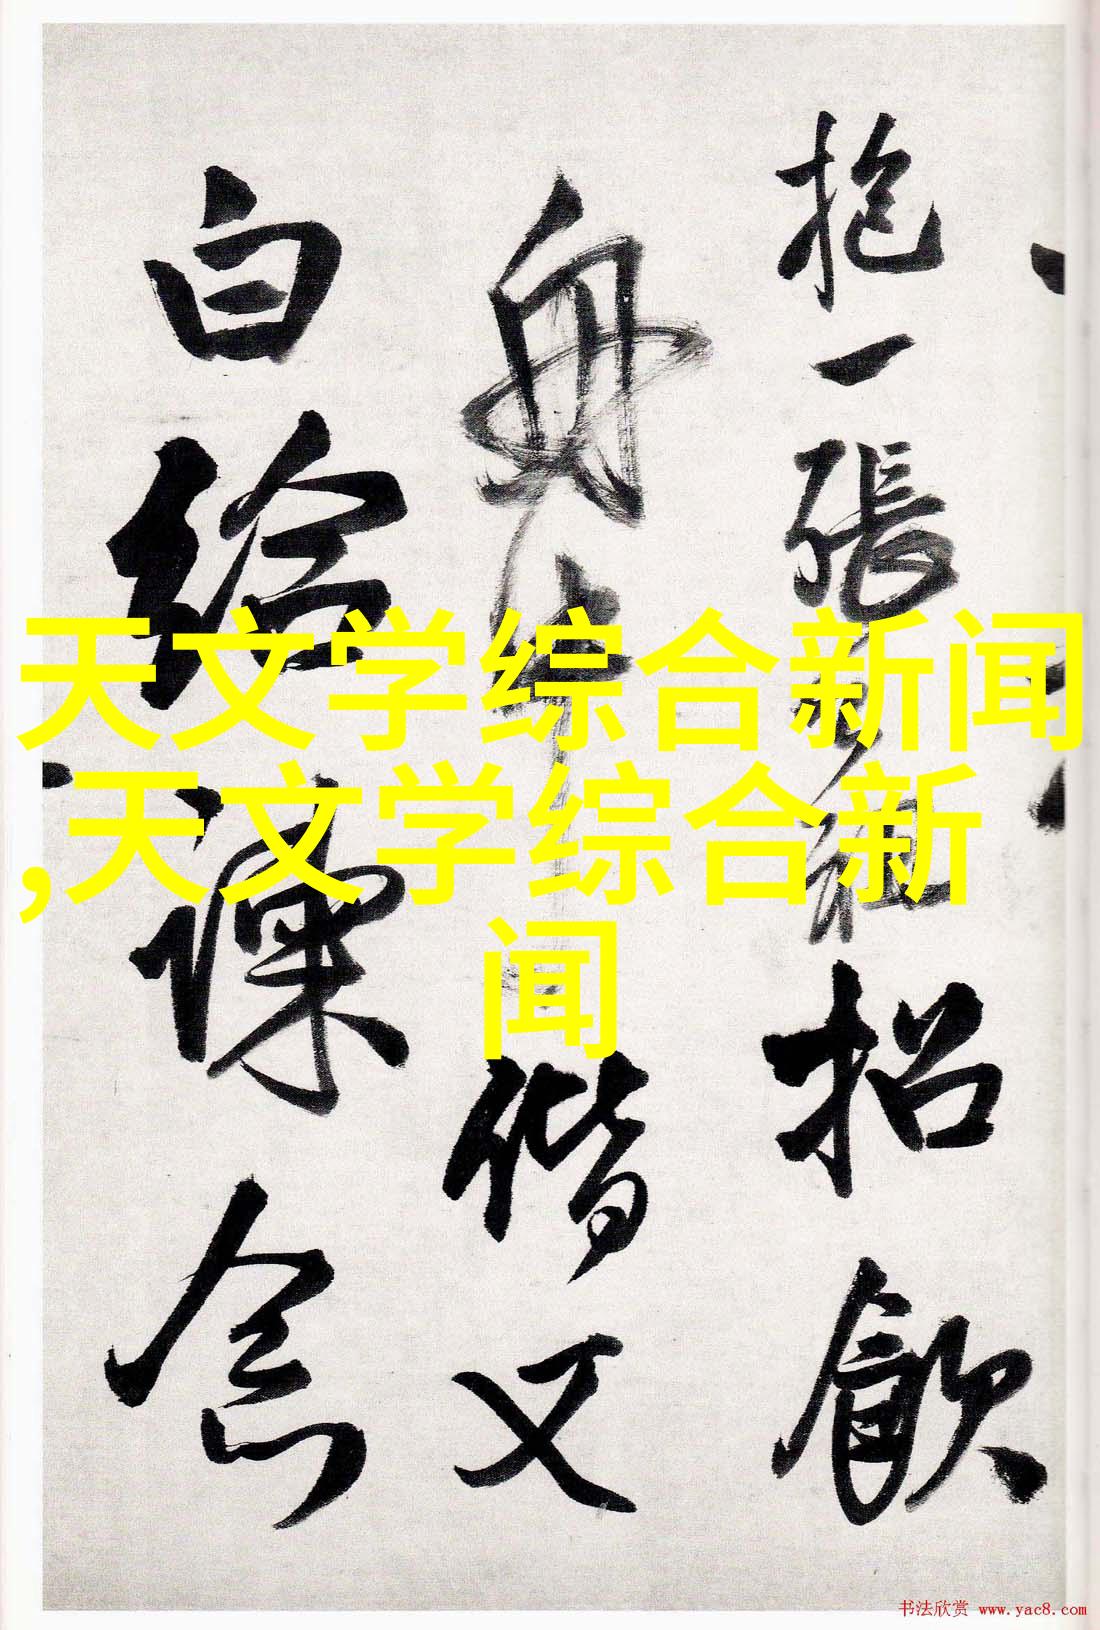 抱一張
招飲
舟
偕又
白給諫念
天文学综合新闻
,天文学综合新
闻
书法欣赏 www.yac8.com